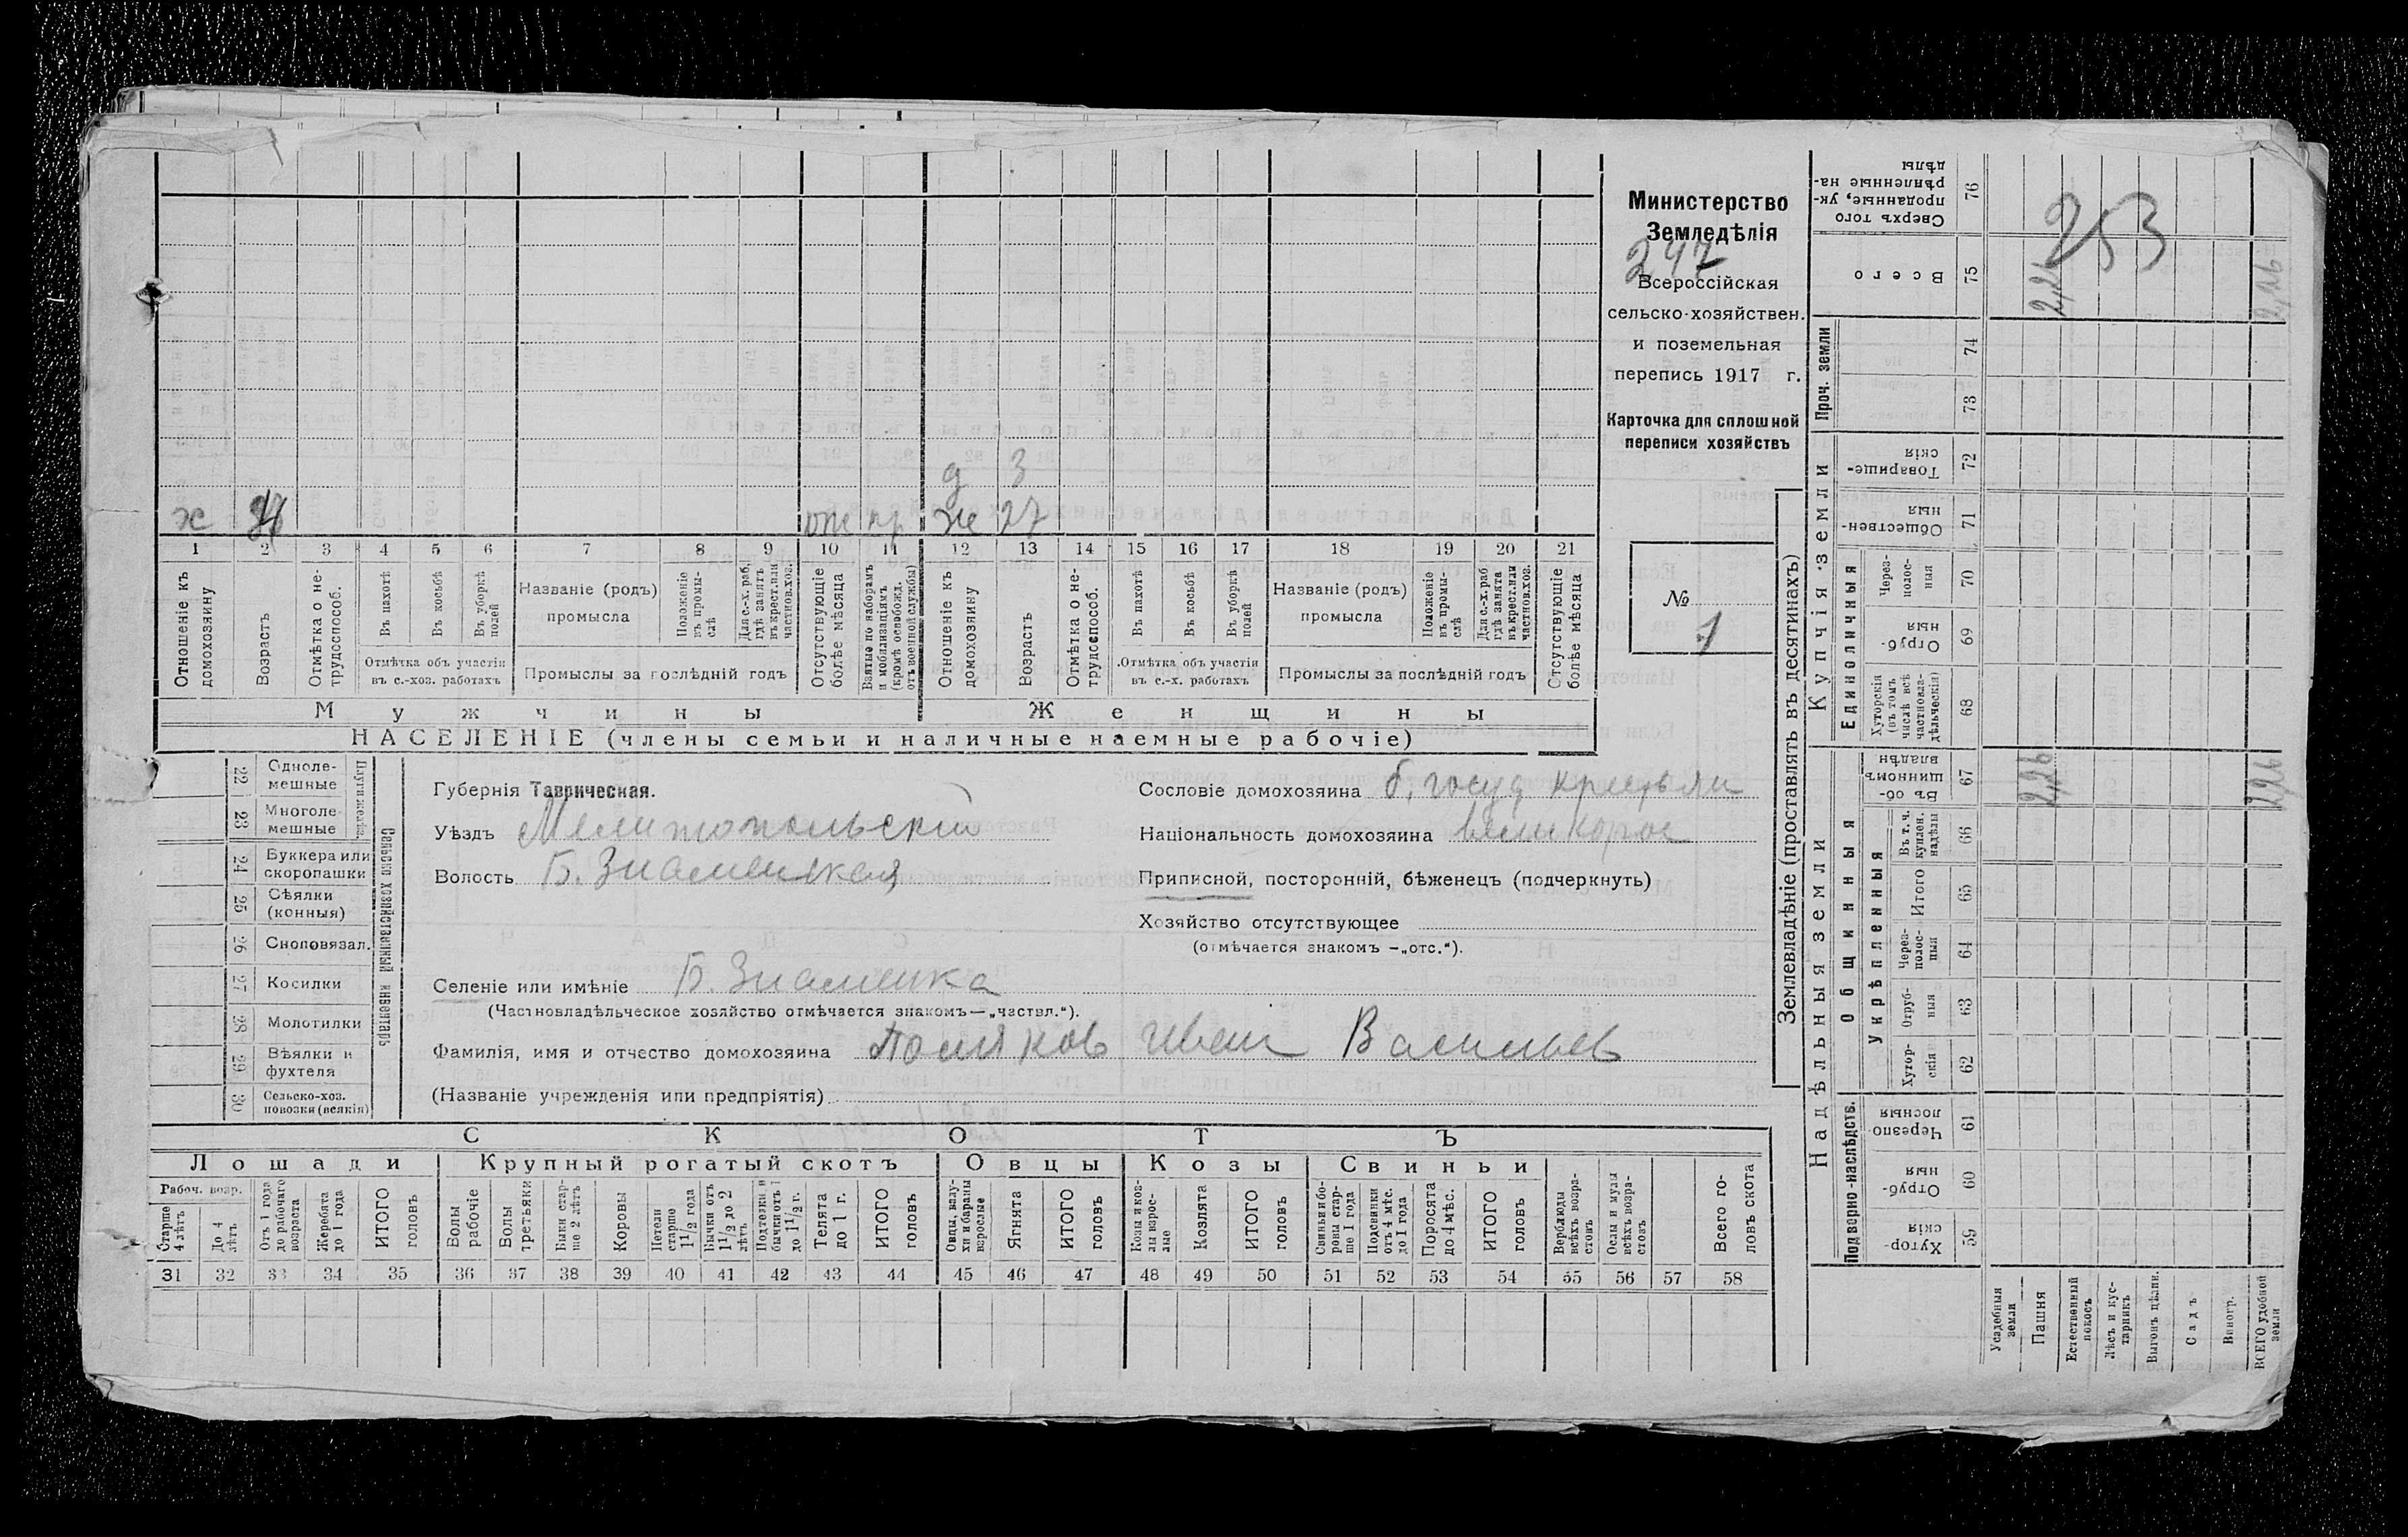 Министерство
Земледѣлія
247
Всероссійская
сельско-хозяйствен.
и поземельная
перепись 1917 г.
Карточка для сплошной
переписи хозяйствъ
№
1
253
д 3
х отс пр ж 27
1 2 3 4 5 6 7 8 9 10 11 12 13 14 15 16 17 18 19 20 21
Отношеніе къ домохозяину
Возрастъ
Отмѣтка о не-трудоспособ.
Въ пахотѣ
Въ косьбѣ
Въ уборкѣ полей
Отмѣтка объ участіи въ с.-хоз. работахъ
Названіе (родъ) промысла
Положеніе въ промы-слѣ
Для с.-х. раб. гдѣ занятъ въ крест. или частнов. хоз.
Промыслы за послѣдній годъ
Отсутствующіе болѣе мѣсяца
Взятые по наборамъ и мобилизаціямъ (кромѣ освобожд. отъ военной службы)
Отношеніе къ домохозяину
Возрастъ
Отмѣтка о не-трудоспособ.
Въ пахотѣ
Въ косьбѣ
Въ уборкѣ полей
Отмѣтка объ участіи въ с.-х. работахъ
Названіе (родъ) промысла
Положеніе въ промы-слѣ
Для с.-х. раб гдѣ занята въ крест. или частнов. хоз.
Промыслы за послѣдній годъ
Отсутствующіе болѣе мѣсяца
Мужчины Женщины
НАСЕЛЕНІЕ (члены семьи и наличные наемные рабочіе)
Сельско хозяйственный инвентарь
22 Одноле-мешные
23 Многоле-мешные
24 Буккера или скоропашки
25 Сѣялки (конныя)
26 Сноповязал.
27 Косилки
28 Молотилки
29 Вѣялки и фухтеля
30 Сельско-хоз. повозки (всякія)
Губернія Таврическая.
Уѣздъ Мелитопольскій
Волость Б. Знаменская
Селеніе или имѣніе Б. Знаменка
(Частновладѣльческое хозяйство отмѣчается знакомъ—„частвл.“).
Фамилія, имя и отчество домохозяина Поляков Иван Васильев
(Названіе учрежденія или предпріятія)
Сословіе домохозяина б. госуд крестьян
Національность домохозяина великорос
Приписной, посторонній, бѣженецъ (подчеркнуть)
Хозяйство отсутствующее
(отмѣчается знакомъ —„отс.“).
СКОТЪ
Лошади Крупный рогатый скотъ Овцы Козы Свиньи
Рабоч. возр.
Старше 4 лѣтъ
До 4 лѣтъ
Отъ 1 года до рабочаго возраста
Жеребята до 1 года
ИТОГО головъ
Волы рабочіе
Волы третьяки
Быки стар-ше 2 лѣтъ
Коровы
Нетели старше 1 1/2 года
Бычки отъ 1 1/2 до 2 лѣтъ
Подтелки и бычки отъ 1 до 1 1/2 г.
Телята до 1 г.
ИТОГО головъ
Овцы, валу-хи и бараны взрослые
Ягнята
ИТОГО головъ
Козы и коз-лы взрос-лые
Козлята
ИТОГО головъ
Свиньи и бо-ровы стар-ше 1 года
Подсвинки отъ 4 мѣс. до 1 года
Поросята до 4 мѣс.
ИТОГО головъ
Верблюды всѣхъ возра-стовъ
Ослы и мулы всѣхъ возра-стовъ
Всего го-ловъ скота
31 32 33 34 35 36 37 38 39 40 41 42 43 44 45 46 47 48 49 50 51 52 53 54 55 56 57 58
Землевладѣніе (проставлять въ десятинахъ)
Надѣльныя земли
Подворно-наслѣдств.
Хутор-скія 59
Отруб-ныя 60
Черезпо-лосныя 61
Общинныя
Укрѣпленныя
Хутор-скія 62
Отруб-ныя 63
Через-полос-ныя 64
Итого 65
Въ т. ч. куплен. надѣлы 66
Въ об-щинномъ владѣн 67
2,26
2,26
Купчія земли
Единоличныя
Хуторскія (въ томъ числѣ всѣ частновла-дѣльческія) 68
Отруб-ныя 69
Через-полос-ныя 70
Обществен-ныя 71
Товарище-скія 72
Проч. земли
73
74
Всего 75
2,26
2,26
Сверхъ того проданные, ук-рѣпленные на-дѣлы 76
Усадебныя земли
Пашня
Естественный покосъ
Лѣсъ и кус-тарникъ
Выгонъ цѣлин.
Садъ
Виногр.
ВСЕГО удобной земли